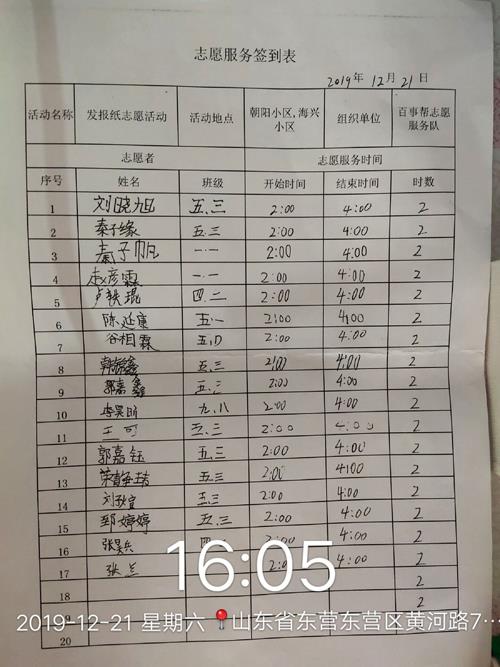 志愿服务签到表
2019年12月21日
活动名称 发报纸志愿活动 活动地点 朝阳小区,海兴小区 组织单位 百事帮志愿服务队
志愿者 志愿服务时间
序号 姓名 班级 开始时间 结束时间 时数
1 刘晓旭 五.三 2:00 4:00 2
2 秦子缘 五.三 2:00 4:00 2
3 秦子帆 一.一 2:00 4:00 2
4 赵彦霖 一.一 2:00 4:00 2
5 卢轶琨 四.二 2:00 4:00 2
6 陈延康 五.一 2:00 4:00 2
7 谷相霖 五. 2:00 4:00 2
8 韩 鑫 五.三 2:00 4:00 2
9 郭嘉鑫 五.三 2:00 4:00 2
10 李昊昕 九.八 2:00 4:00 2
11 王可 五.三 2:00 4:00 2
12 郭嘉钰 五.三 2:00 4:00 2
13 荣静 五.三 2:00 4:00 2
14 刘 宣 五.三 2:00 4:00 2
15 郅婷婷 五.三 2:00 4:00 2
16 张昊兵 四 4:00 2
17 张兰 2:0 4:00 2
18 2
2
20
16:05
2019-12-21 星期六 山东省东营东营区黄河路7…